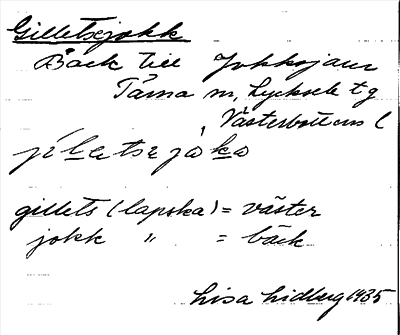 Gilletsejokk
Bäck till Jokksjaur
Tärna sn, Lycksele tg
Västerbottens l
jìletsε jåko
gillets (lapska) = väster
jokk " = bäck
Lisa Lidberg 1935